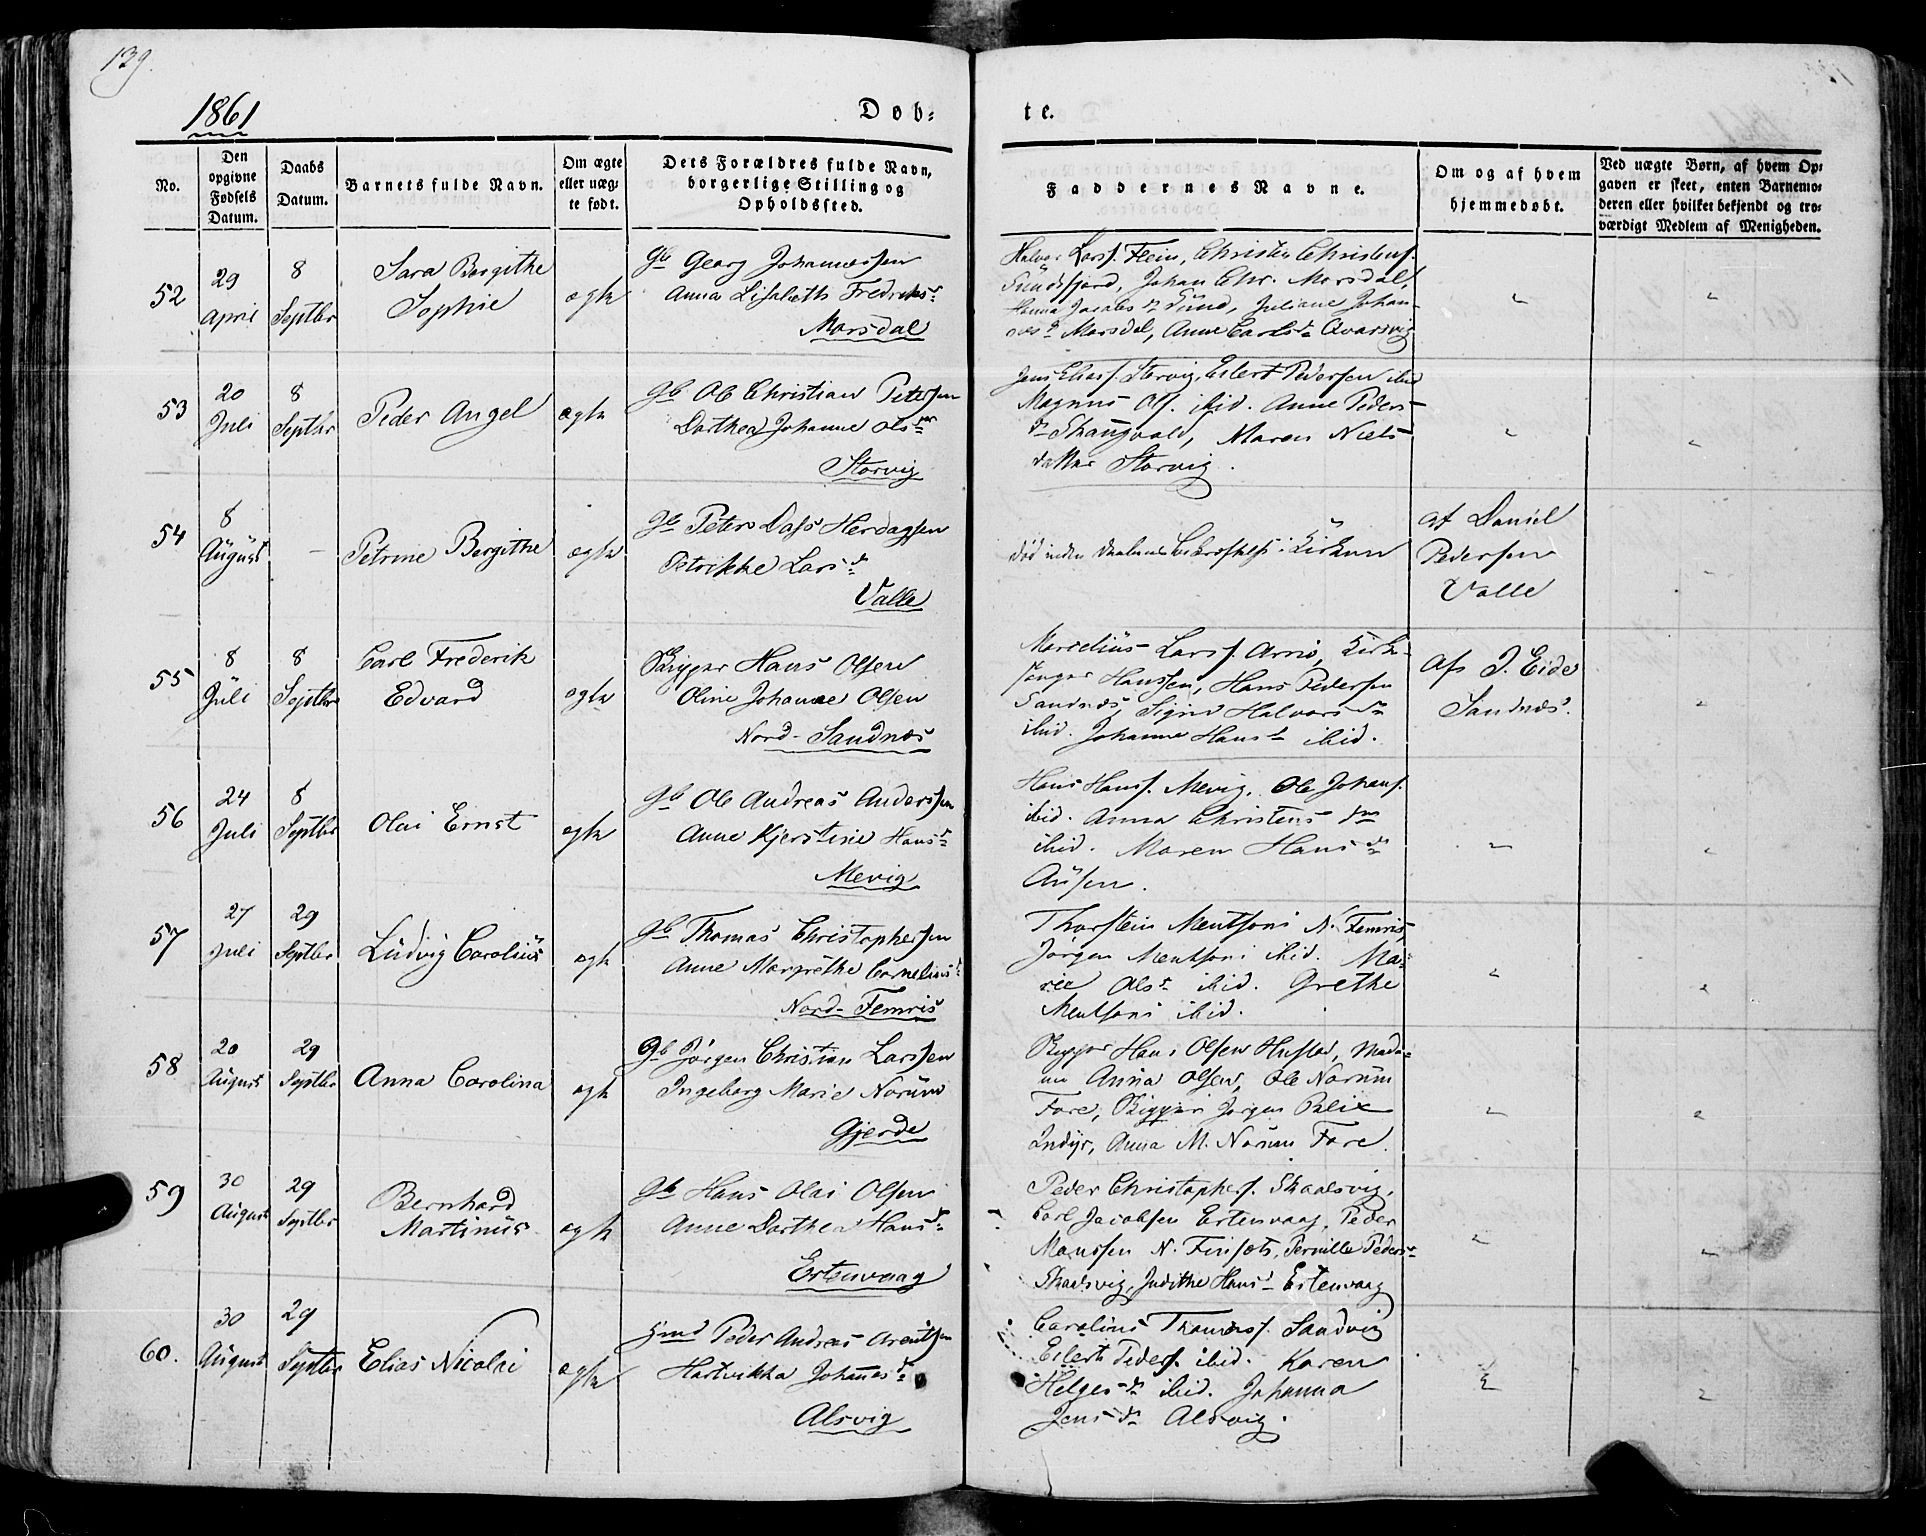 139.
1861
Døb-
te.
No.
Den opgivne Fødsels Datum.
Daabs Datum.
Barnets fulde Navn.
Om ægte eller uæg-te født.
Dets Forældres fulde Navn, borgerlige Stilling og Opholdssted.
Faddernes Navne.
Om og af hvem hjemmedøbt.
Ved uægte Børn, af hvem Op-gaven er skeet, enten Barnemo-deren eller hvilket bekjendt og tro-værdigt Medlem af Menigheden.
52
29 April
8 Septbr
Sara Bergithe
Sophie
ægte
Gb Georg Johannessen
Anna Lisabeth Fredriks d.
Marsdal
Halvor Larss. Flein, Christen Christens.
Sundsfjord, Johan Chr. Marsdal,
Hanna Jacobs dr Sund, Juliane Johan-
Marsdal, Anne Carls dr Qvarsvig
53
20 Juli
8 Septbr
Peder Angel
ægte
Gb Ole Christian Petersen
Dorthea Johanne Ols dtr
Storvig
Jens Eliass. Storvig, Eilert Pedersen ibid
Magnus Ols. ibid. Anne Peders-
dr Skaugvold, Maren Niels-
datter Storvig.
54
8 August
-
Petrine Bergithe
ægte
Gb Peter Dass Herdagsen
Petrikke Lars d.
Valle
død inden Daabens Bekræftelse i Kirken
af Daniel
Pedersen
Valle
55
8 Juli
8 Septbr
Carl Frederik
Edvard
ægte
Skipper Hans Olsen
Oline Johanne Olsen
Nord-Sandnæs
Marcelius Larss. Arnø, Kirk-
Hanssen, Hans Pedersen
Sandnæs, Signe Halvors dr
ibid. Johanne Hans d. ibid.
af J. Eide
Sandnæs.
56
24 Juli
8 Septbr
Olai Ernst
ægte
Gb Ole Andreas Anderssen
Anne Kjerstine Hans d.
Mevig
Hans Hanss. Mevig, Ole Johans.
ibid. Anna Christens dtr
ibid. Maren Hans dr
Ausen.
57
27 Juli
29 Septbr
Ludvig Carolius
ægte
Gb Thomas Christophersen
Anne Margrethe Cornelius d.
Nord-Femris
Thorstein Mentsoni N. Femris,
Jørgen Mentsoni ibid. Ma-
ren Ols d. ibid. Grethe
Mentsoni ibid.
58
20 August
29 Septbr
Anna Carolina
ægte
Gb Jørgen Christian Larssen
Ingeborg Marie Norum
Gjerde
Skipper Hans Olsen Hustad, Mada-
me Anna Olsen, Ole Norum
Fore, Skipper Jørgen Blix
Indyr, Anna M. Norum Fore.
59
30 August
29 Septbr
Bernhard
Martinus
ægte
Gb Hans Olai Olsen
Anne Dorthea Hans d.
Ertenvaag
Peder Christophers. Skaalsvig,
Carl Jacobsen Ertenvaag, Peder
Monssen N. Finsæt, Pernille Peders d.
Skaalsvig, Judithe Hans d. Ertenvaag
60.
30 August
29 Septbr
Elias Nicolai
ægte
Hmd Peder Andreas Arentsen
Hartvikka Johannes d.
Alsvig
Carolius Thomess. Sandvig
Eilert Peders. ibid. Karen
Helges d. ibid. Johanna
Jens dr Alsvig.